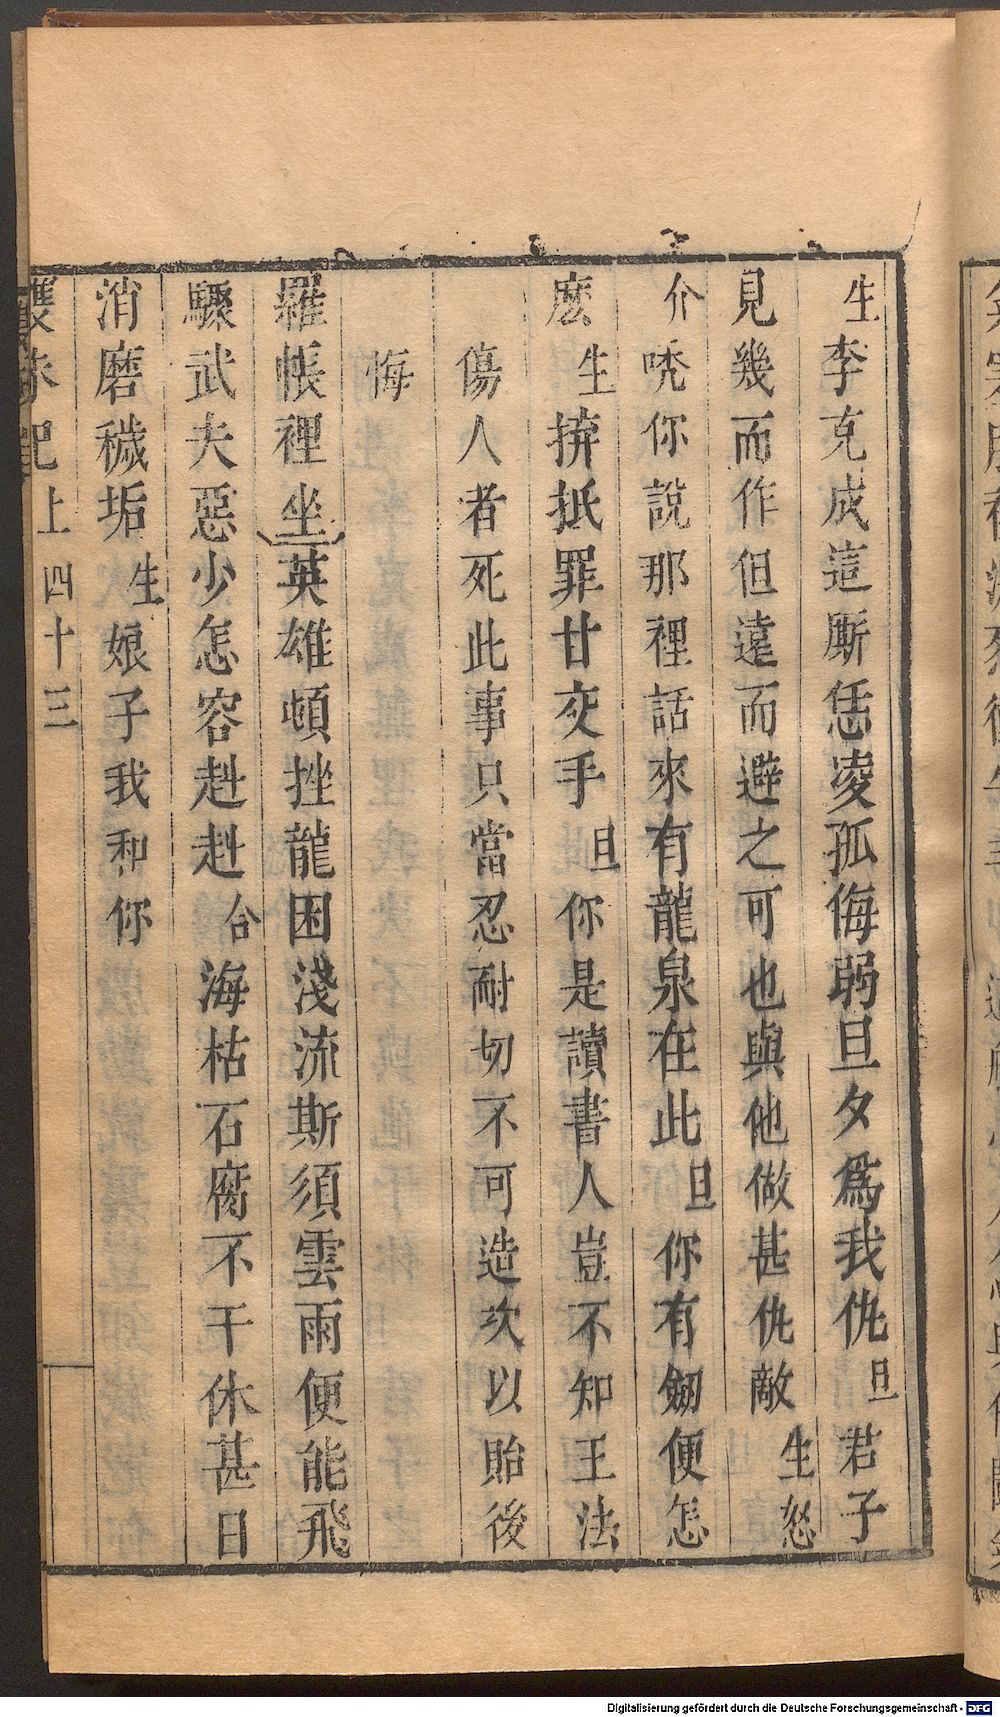 生李克成這厮恁凌孤侮弱旦夕爲我仇旦君子
見幾而作但遠而避之可也與他做甚仇敵生怒
介唗你說那裡話來有龍泉在此旦你有劒便怎
麽生拚抵罪甘交手旦你是讀書人豈不知王法
傷人者死此事只當忍耐切不可造次以貽後
悔
羅帳裡坐英雄頓挫龍困淺流斯須雲雨便能飛
驟武夫惡少怎容赳赳合海枯石腐不干休甚日
消磨穢垢生娘子我和你
雙珠記上四十三
Digitalisierung gefördert durch die Deutsche Forschungsgemeinschaft - DFG